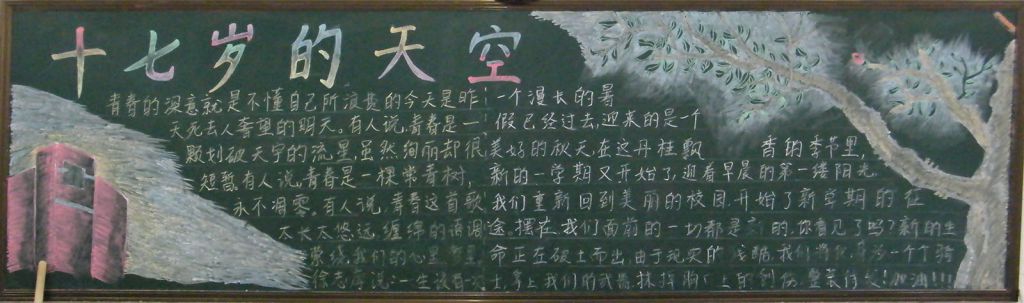 十七岁的天空
青春的深意就是不懂自己所浪费的今天是昨
天死去人奢望的明天。有人说,青春是一
颗划破天宇的流星,虽然绚丽却很
短暂,有人说,青春是一棵常青树,
永不凋零。有人说,青春这首歌
太长太悠远,缠绵的情调
萦绕我们的心里
说:一生
一个漫长的暑
假已经过去,迎来的是一个
美好的秋天在这丹桂飘香的季节里,
新的一学期又开始了,迎着早晨的第一缕阳光
我们重新回到美丽的校园开始了新学期的征
途。摆在我们面前的一切都是的,你看见了吗?新的生
命正在破土而出,由于现实的残酷,我们一个个骑
士,拿上我们的武器,抹掉胸口上的创伤,整装待发!加油!!!